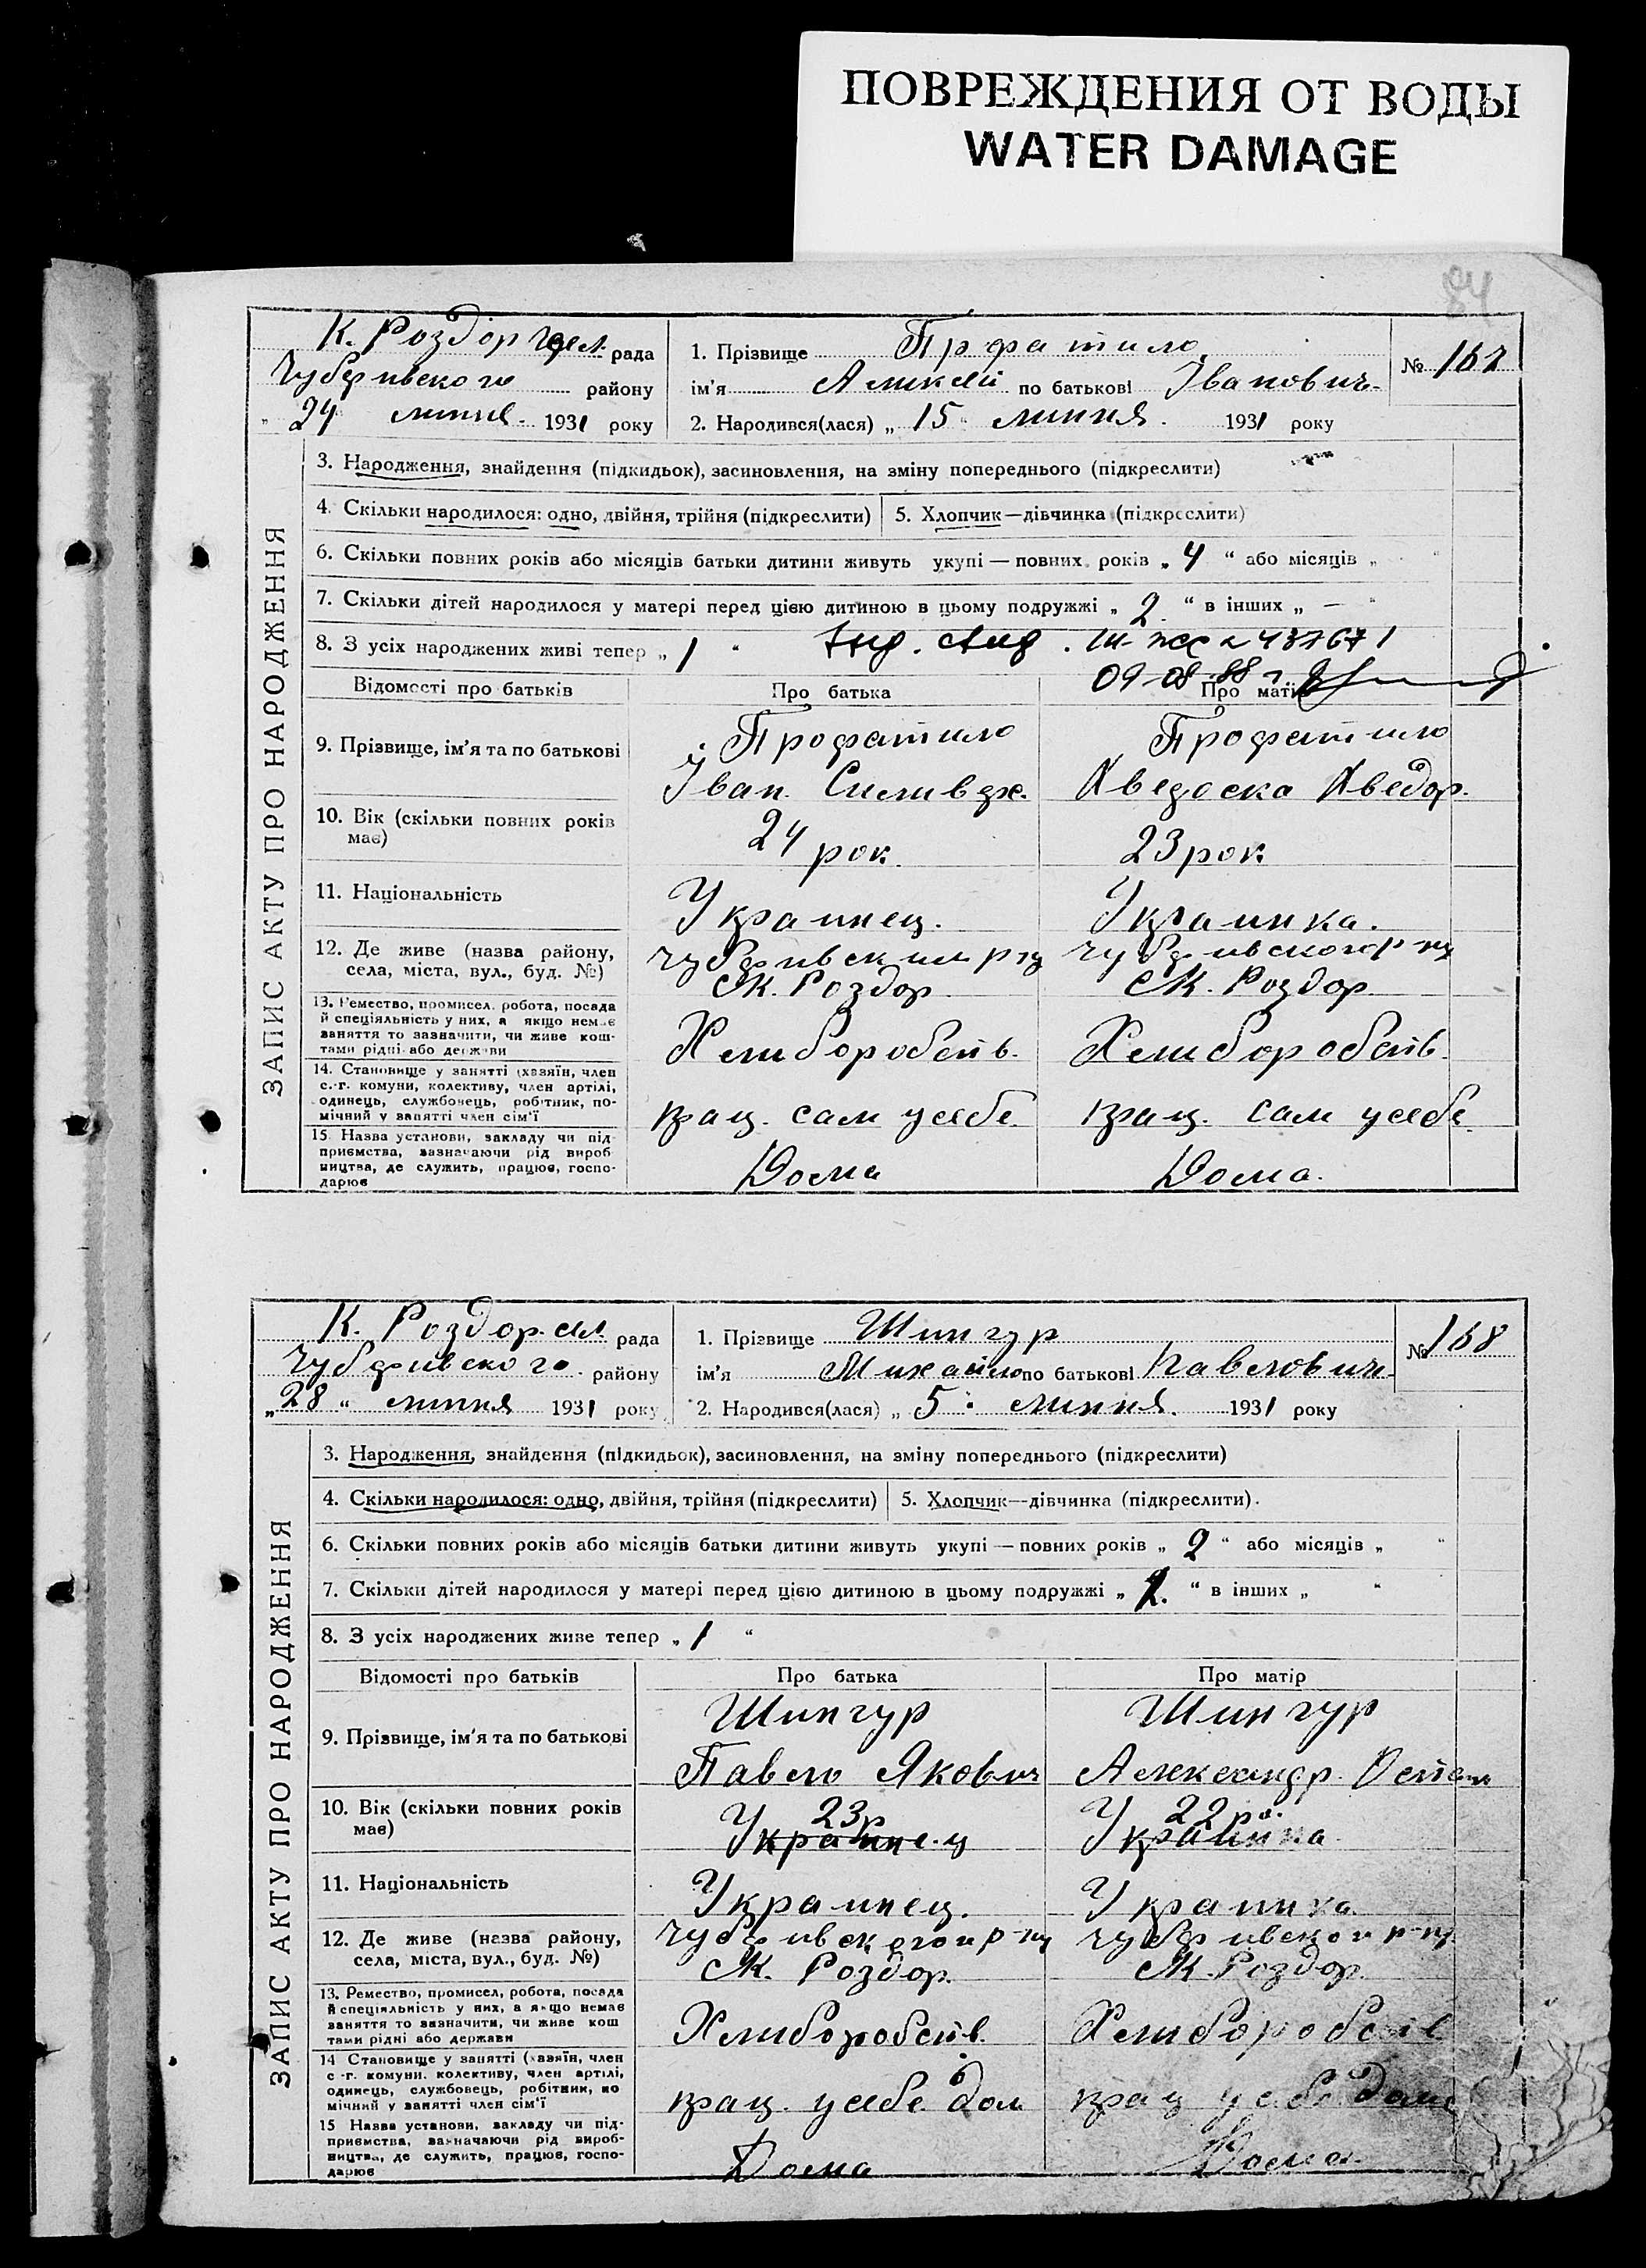 ПОВРЕЖДЕНИЯ ОТ ВОДЫ
WATER DAMAGE
84
К. Роздор рада
району
24 липня 1931 року
1. Прізвище
ім’я Аликсій по батькові Іванович
2. Народився(лася) „ 15 липня 1931 року
№ 167
ЗАПИС АКТУ ПРО НАРОДЖЕННЯ
3. Народження, знайдення (підкидьок), засиновлення, на зміну попереднього (підкреслити)
4. Скільки народилося: одно, двійня, трійня (підкреслити)
5. Хлопчик—дівчинка (підкреслити)
6. Скільки повних років або місяців батьки дитини живуть укупі — повних років „ 4 “ або місяців „ “
7. Скільки дітей народилося у матері перед цією дитиною в цьому подружжі „ 2 “ в інших „ — “
8. З усіх народжених живі тепер „ 1 “
09-08-88 г.
Відомості про батьків
Про батька
Про матір
9. Прізвище, ім’я та по батькові
Профатило
Іван
Профатило
10. Вік (скільки повних років
має)
24 рок.
23 рок.
11. Національність
Украинец.
Украинка.
12. Де живе (назва району,
села, міста, вул., буд. №)
К. Роздор.
К. Роздор.
13. Ремество, промисел, робота, посада
й спеціяльність у них, а якщо немає
заняття то зазначити, чи живе кош-
тами рідні або держави
14. Становище у занятті (хазяїн, член
с.-г. комуни, колективу, член артілі,
одинець, службовець, робітник, по-
мічний у занятті член сім’ї
прац. сам у себе
прац. сам у себе
15. Назва установи, закладу чи під-
приємства, зазначаючи рід вироб-
ництва, де служить, працює, госпо-
дарює
Дома
Дома.
К. Роздор. сил. рада
району
„ 28 “ липня 1931 року
1. Прізвище Шингур
ім’я Михайло по батькові Павлович
2. Народився(лася) „ 5 липня 1931 року
№ 168
ЗАПИС АКТУ ПРО НАРОДЖЕННЯ
3. Народження, знайдення (підкидьок), засиновлення, на зміну попереднього (підкреслити)
4. Скільки народилося: одно, двійня, трійня (підкреслити)
5. Хлопчик—дівчинка (підкреслити).
6. Скільки повних років або місяців батьки дитини живуть укупі — повних років „ 2 “ або місяців „ “
7. Скільки дітей народилося у матері перед цією дитиною в цьому подружжі „ “ в інших „ “
8. З усіх народжених живе тепер „ 1 “
Відомості про батьків
Про батька
Про матір
9. Прізвище, ім’я та по батькові
Шингур
Павло Якович
Шингур
Александр.
10. Вік (скільки повних років
має)
23 р
Украинец
22 р.
Украинка
11. Національність
Украинец.
Украинка
12. Де живе (назва району,
села, міста, вул., буд. №)
К. Роздор.
К. Роздор.
13. Ремество, промисел, робота, посада
й спеціяльність у них, а якщо немає
заняття то зазначити, чи живе кош
тами рідні або держави
14 Становище у занятті (хазяїн, член
с.-г. комуни, колективу, член артілі,
одинець, службовець, робітник, по
мічний у занятті член сім’ї
прац. у себе дом
прац у себе дома
15 Назва установи, закладу чи під-
приємства, зазначаючи рід вироб-
ництва, де служить, працює, госпо-
дарює
Дома
Дома.